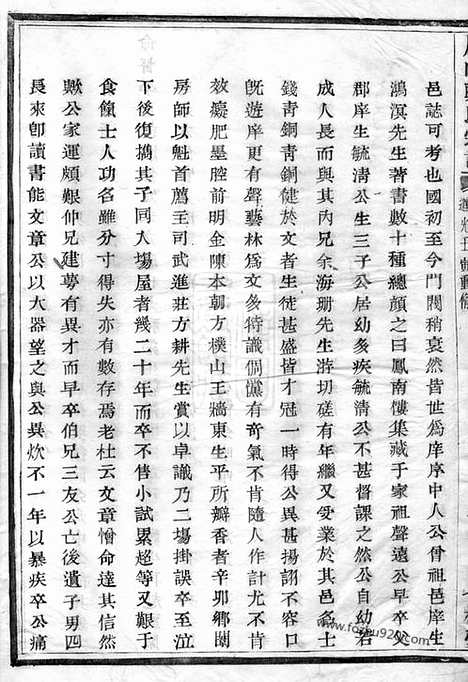 邑誌可考也國初至今門閥稍衰然皆世爲庠序中人公曾祖邑庠生
鴻溟先生著書數十種總顏之曰鳳南樓集藏于家祖聲遠公早卒父
郡庠生毓清公生三子公居幼多疾毓清公不甚督課之然公自幼若
成人長而與其內兄余海珊先生游切磋有年繼又受業於其邑名士
錢青銅青銅健於文者生徒甚盛皆才冠一時得公異甚揚詡不容口
旣遊庠更有聲藝林爲文多特識倜儻有奇氣不肯隨人作計尤不肯
效癡肥墨腔前明金陳本朝方樸山王牆東生平所瓣香者辛卯鄉闈
房師以魁首薦主司武進莊方耕先生賞以卓識乃二場掛誤卒至泣
下後復擕其子同入塲屋者幾二十年而卒不售小試累超等又艱于
食餼士人功名雖分寸得失亦有數存焉老杜云文章憎命達其信然
歟公家運頗艱仲兄建夢有異才而早卒伯兄三友公亡後遺子男四
長來卽讀書能文章公以大器望之與公異炊不一年以暴疾卒公痛
www.fozhu920.com